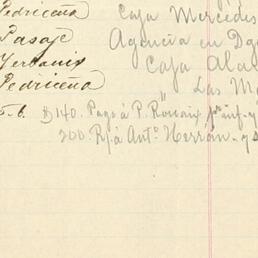 Pedriceña Caja Mercedes
Pasaje Agencia en Dgo
Yerbanis Caja Ala
Pedriceña "Las M
5-6. $140. Pago á P. Rouaix pr inf-y
200. R/. á Anto. Herrán-y s